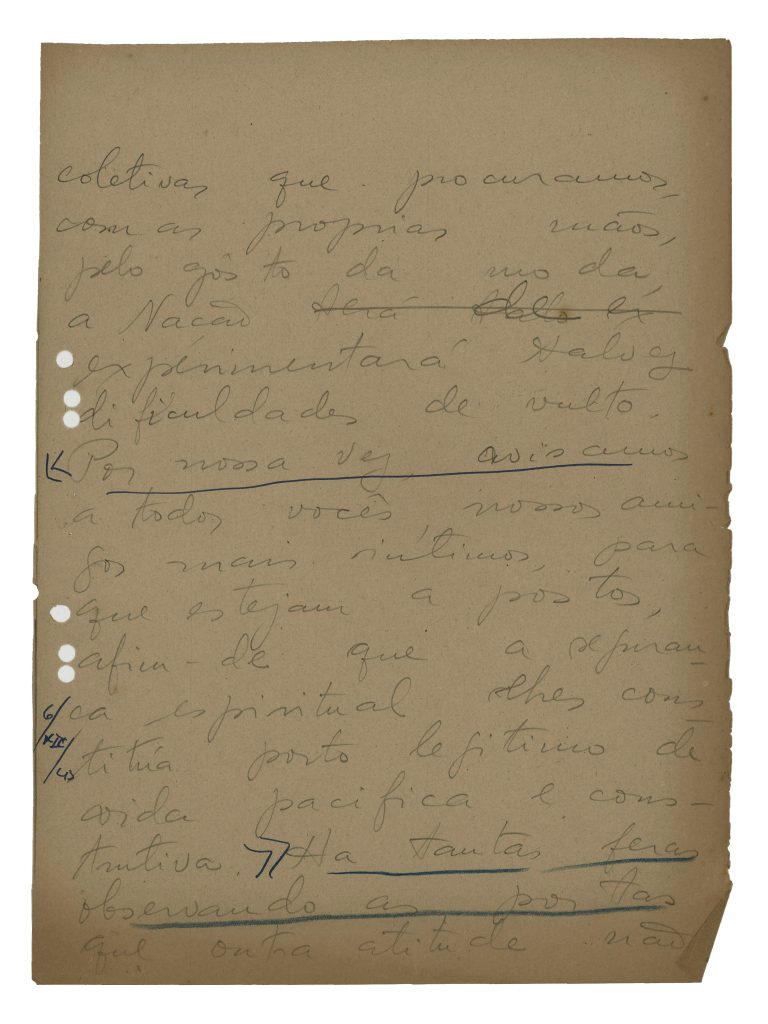 coletivas que procuramos,
com as proprias mãos,
pelo gôsto da moda,
a Nacão terá talvez ex
experimentará talvez
dificuldades de vulto.
Por nossa vez, avisamos
a todos vocês nossos ami-
gos mais íntimos, para
que estejam a postos,
afim-de que a seguran-
ca espiritual lhes cons-
titúa porto legitimo de
vida pacifica e cons-
trutiva. Ha tantas feras
observando as portas
que outra atitude não
6/XII/43